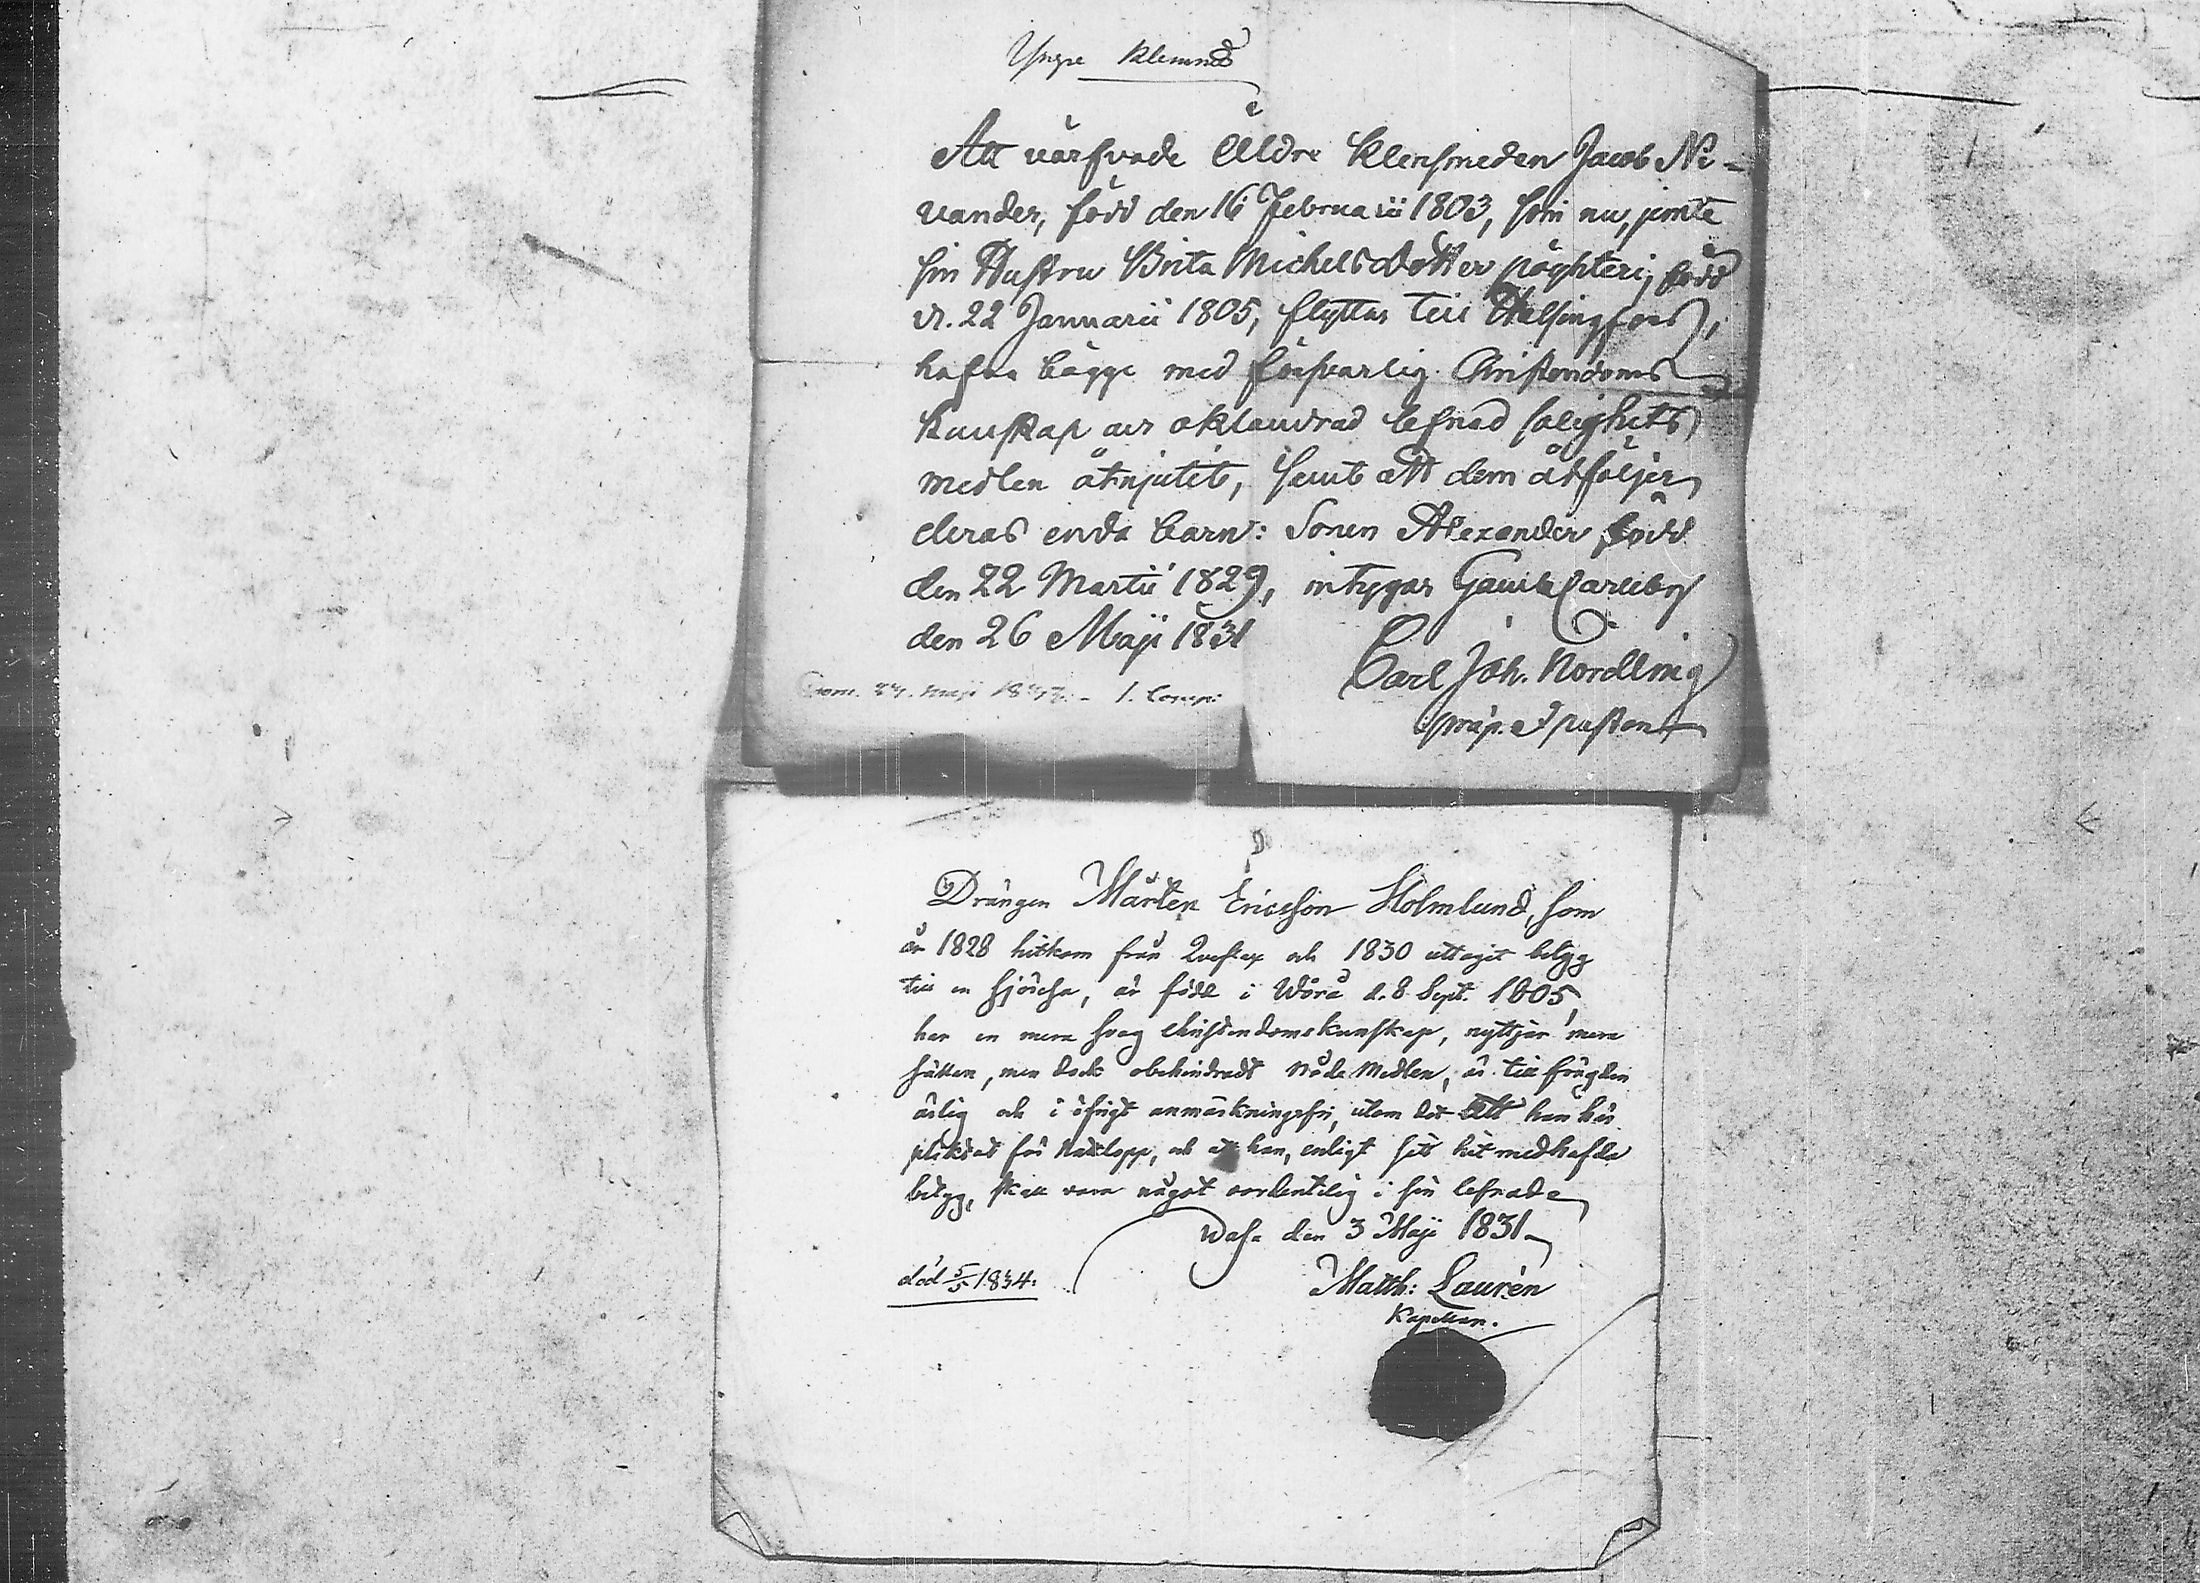 Yngre Klensmed
Att värfvade Äldre Klensmeden Jacob Ni-
vander, född den 16 Februarii 1803, som nu, jemte
sin Hustru Brita Michelsdotter född
d. 22 Januarii 1805, flyttar till Helsingfors,
hafva bägge med försvarlig Christendoms
Kunskap och oklandrad lefnad salighets
medlen åtnjutit, samt att dem åtföljer
deras enda barn: Sonen Alexander född
den 22 Martii 1829, intygar Gamla Carleby
den 26 Maji 1831
Carl Joh. Nordling
prap. & pastor
Maji 1. Comp:
Drängen Mårten Ericsson Holmlund, som
år 1828 hitkom från Qveflax och 1830 uttagit betyg
till en sjöresa, är född i Wörå d. 8 Sept. 1805,
har en mera svag christendomskunskap, nyttjar mera
sällan, men dock obehindradt Nåde Medlen, är till frägden
ärlig och i öfrigt anmärkningsfri, utom det att han här
pliktat för och at han, enligt sitt hit medhafda
betyg, skall vara något oordentelig i sin lefnad
Wasa den 3 Maji 1831
död 5/5 1834.
Matth: Laurén
Kapellan.